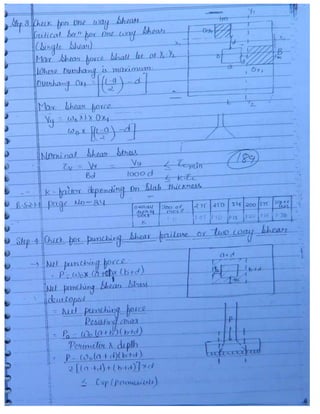 Step 3 Check for one way Shear
Critical Secⁿ for one way Shear
(Single Shear)
Max. Shear force Shall be at Y₁ Y₂
Where Overhang is maximum
Overhang Ox₁ = [(L-a/2) - d]
Max. Shear force
Vy = w₀ x 1 x Ox₁
w₀ x [(L-a/2) - d]
Nominal Shear Stress
τv = Vu/Bd = Vu/1000 d ≤ τc min
≤ kτc
189
k - factor depending on Slab thickness
Page No - 84
overall
300 or
more
275 250 225 200 175
Step-4 Check for punching Shear failure or two way Shear
→ Net punching force
= P - w₀ x (a+d) x (b+d)
Net punching Shear Stress
developed
= Net punching force
Resisting area
= P - w₀ (a+d)(b+d)
Perimeter x depth
= P - w₀ (a+d)(b+d)
2[(a+d)+(b+d)] x d
≤ τcp (permissible)
a+d
b+d
P